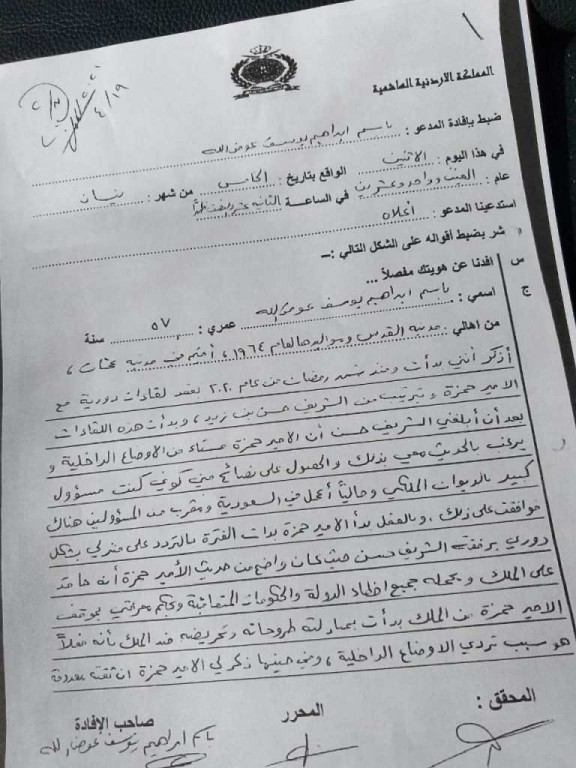 ١
٤/١٩
المملكة الاردنية الهاشمية
ضبط بإفادة المدعو : باسم ابراهيم يوسف عوض الله
في هذا اليوم : الاثنين الواقع بتاريخ : الخامس من شهر : نيسان
عام : الفين وواحد وعشرين في الساعة الثانيه عشر
استدعينا المدعو : أعلاه
بضبط أقواله على الشكل التالي :-
س افدنا عن هويتك مفصلاً ...
ج اسمي : باسم ابراهيم يوسف عوض الله عمري : ٥٧ سنة
من اهالي : مدينة القدس ومواليدها لعام ١٩٦٤ ، أقيم في مدينة عمان ،
أذكر أنني بدأت ومنذ شهر رمضان من عام ٢٠٢٠ بعقد لقاءات دورية مع
الامير حمزة وبترتيب من الشريف حسن بن زيد ، وبدأت هذه اللقاءات
بعد أن أبلغني الشريف حسن أن الامير حمزة مستاء من الاوضاع الداخلية و
يرغب بالحديث معي بذلك والحصول على نصائح مني كوني كنت مسؤول
كبير بالديوان الملكي وحالياً أعمل في السعودية ومقرب من المسؤولين هناك
فوافقت على ذلك . وبالفعل بدأ الامير حمزة بذات الفترة بالتردد على منزلي بشكل
دوري برفقة الشريف حسن حيث كان واضح من حديث الأمير حمزة أنه حاقد
على الملك ويحمله جميع اخطاء الدولة والحكومات المتعاقبة وبحكم معرفتي بموقف
الامير حمزة من الملك بدأت بمبادلته طروحاته وتحريضه ضد الملك بأنه فعلاً
هو سبب تردي الاوضاع الداخلية ، وفي حينها ذكر لي الامير حمزة ان ثقته معدومة
المحقق : المحرر صاحب الإفادة
باسم ابراهيم يوسف عوض الله